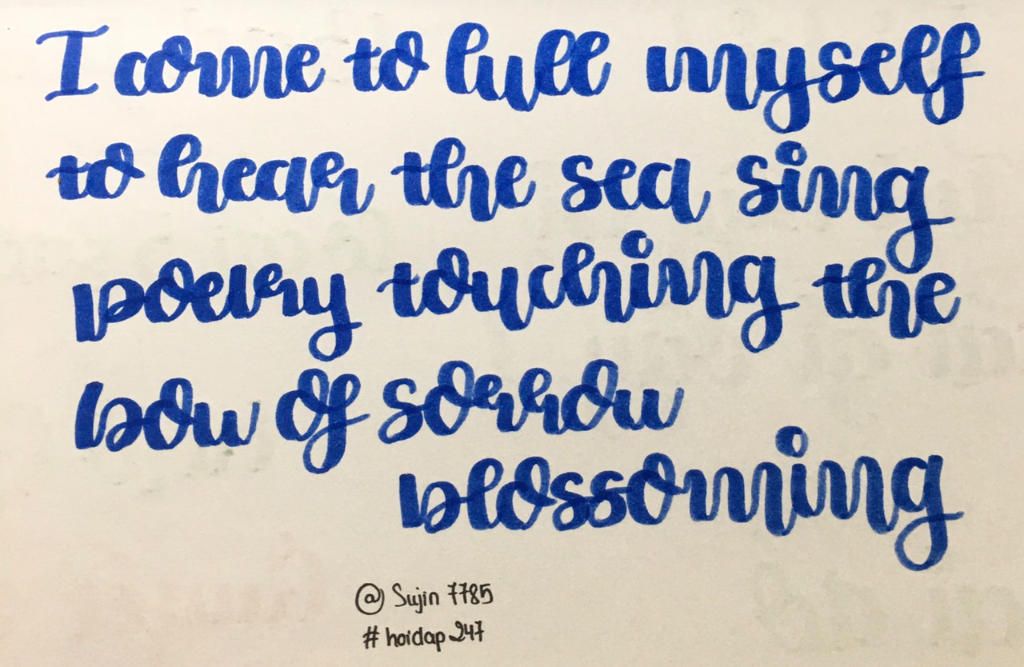 I come to lull myself
to hear the sea sing
poetry touching the
bow of sorrow
blossoming
@Sujin7785
#hoidap247